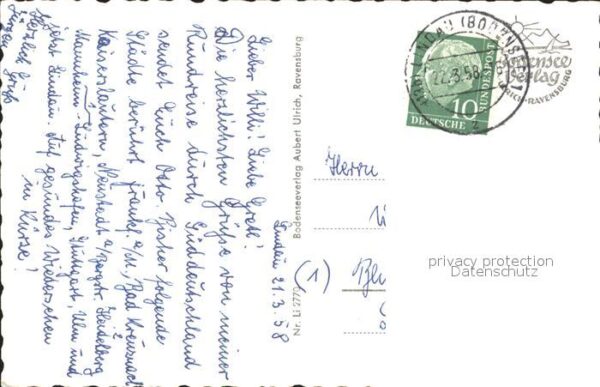 Lindau 21.3.58
Lieber Willi! Liebe Gretl!
Die herzlichsten Grüße von meiner
Rundreise durch Süddeutschland
sendet Euch Otto. Bisher folgende
Städte berührt: Frankf. a/M, Bad Kreuznach
Kaiserslautern, Neustadt a/Bergstr. Heidelberg
Mannheim-Ludwigshafen, Stuttgart, Ulm und
jetzt Lindau. Auf gesundes Wiedersehen
in Kürze!
Herzlich Grüße
Nr. Li 2770
Bodenseeverlag Aubert Ulrich, Ravensburg
LINDAU (BODENSEE)
22.3.58
10
DEUTSCHE
BUNDESPOST
Bodensee
Verlag
ULRICH-RAVENSBURG
Herrn
(1)
privacy protection
Datenschutz